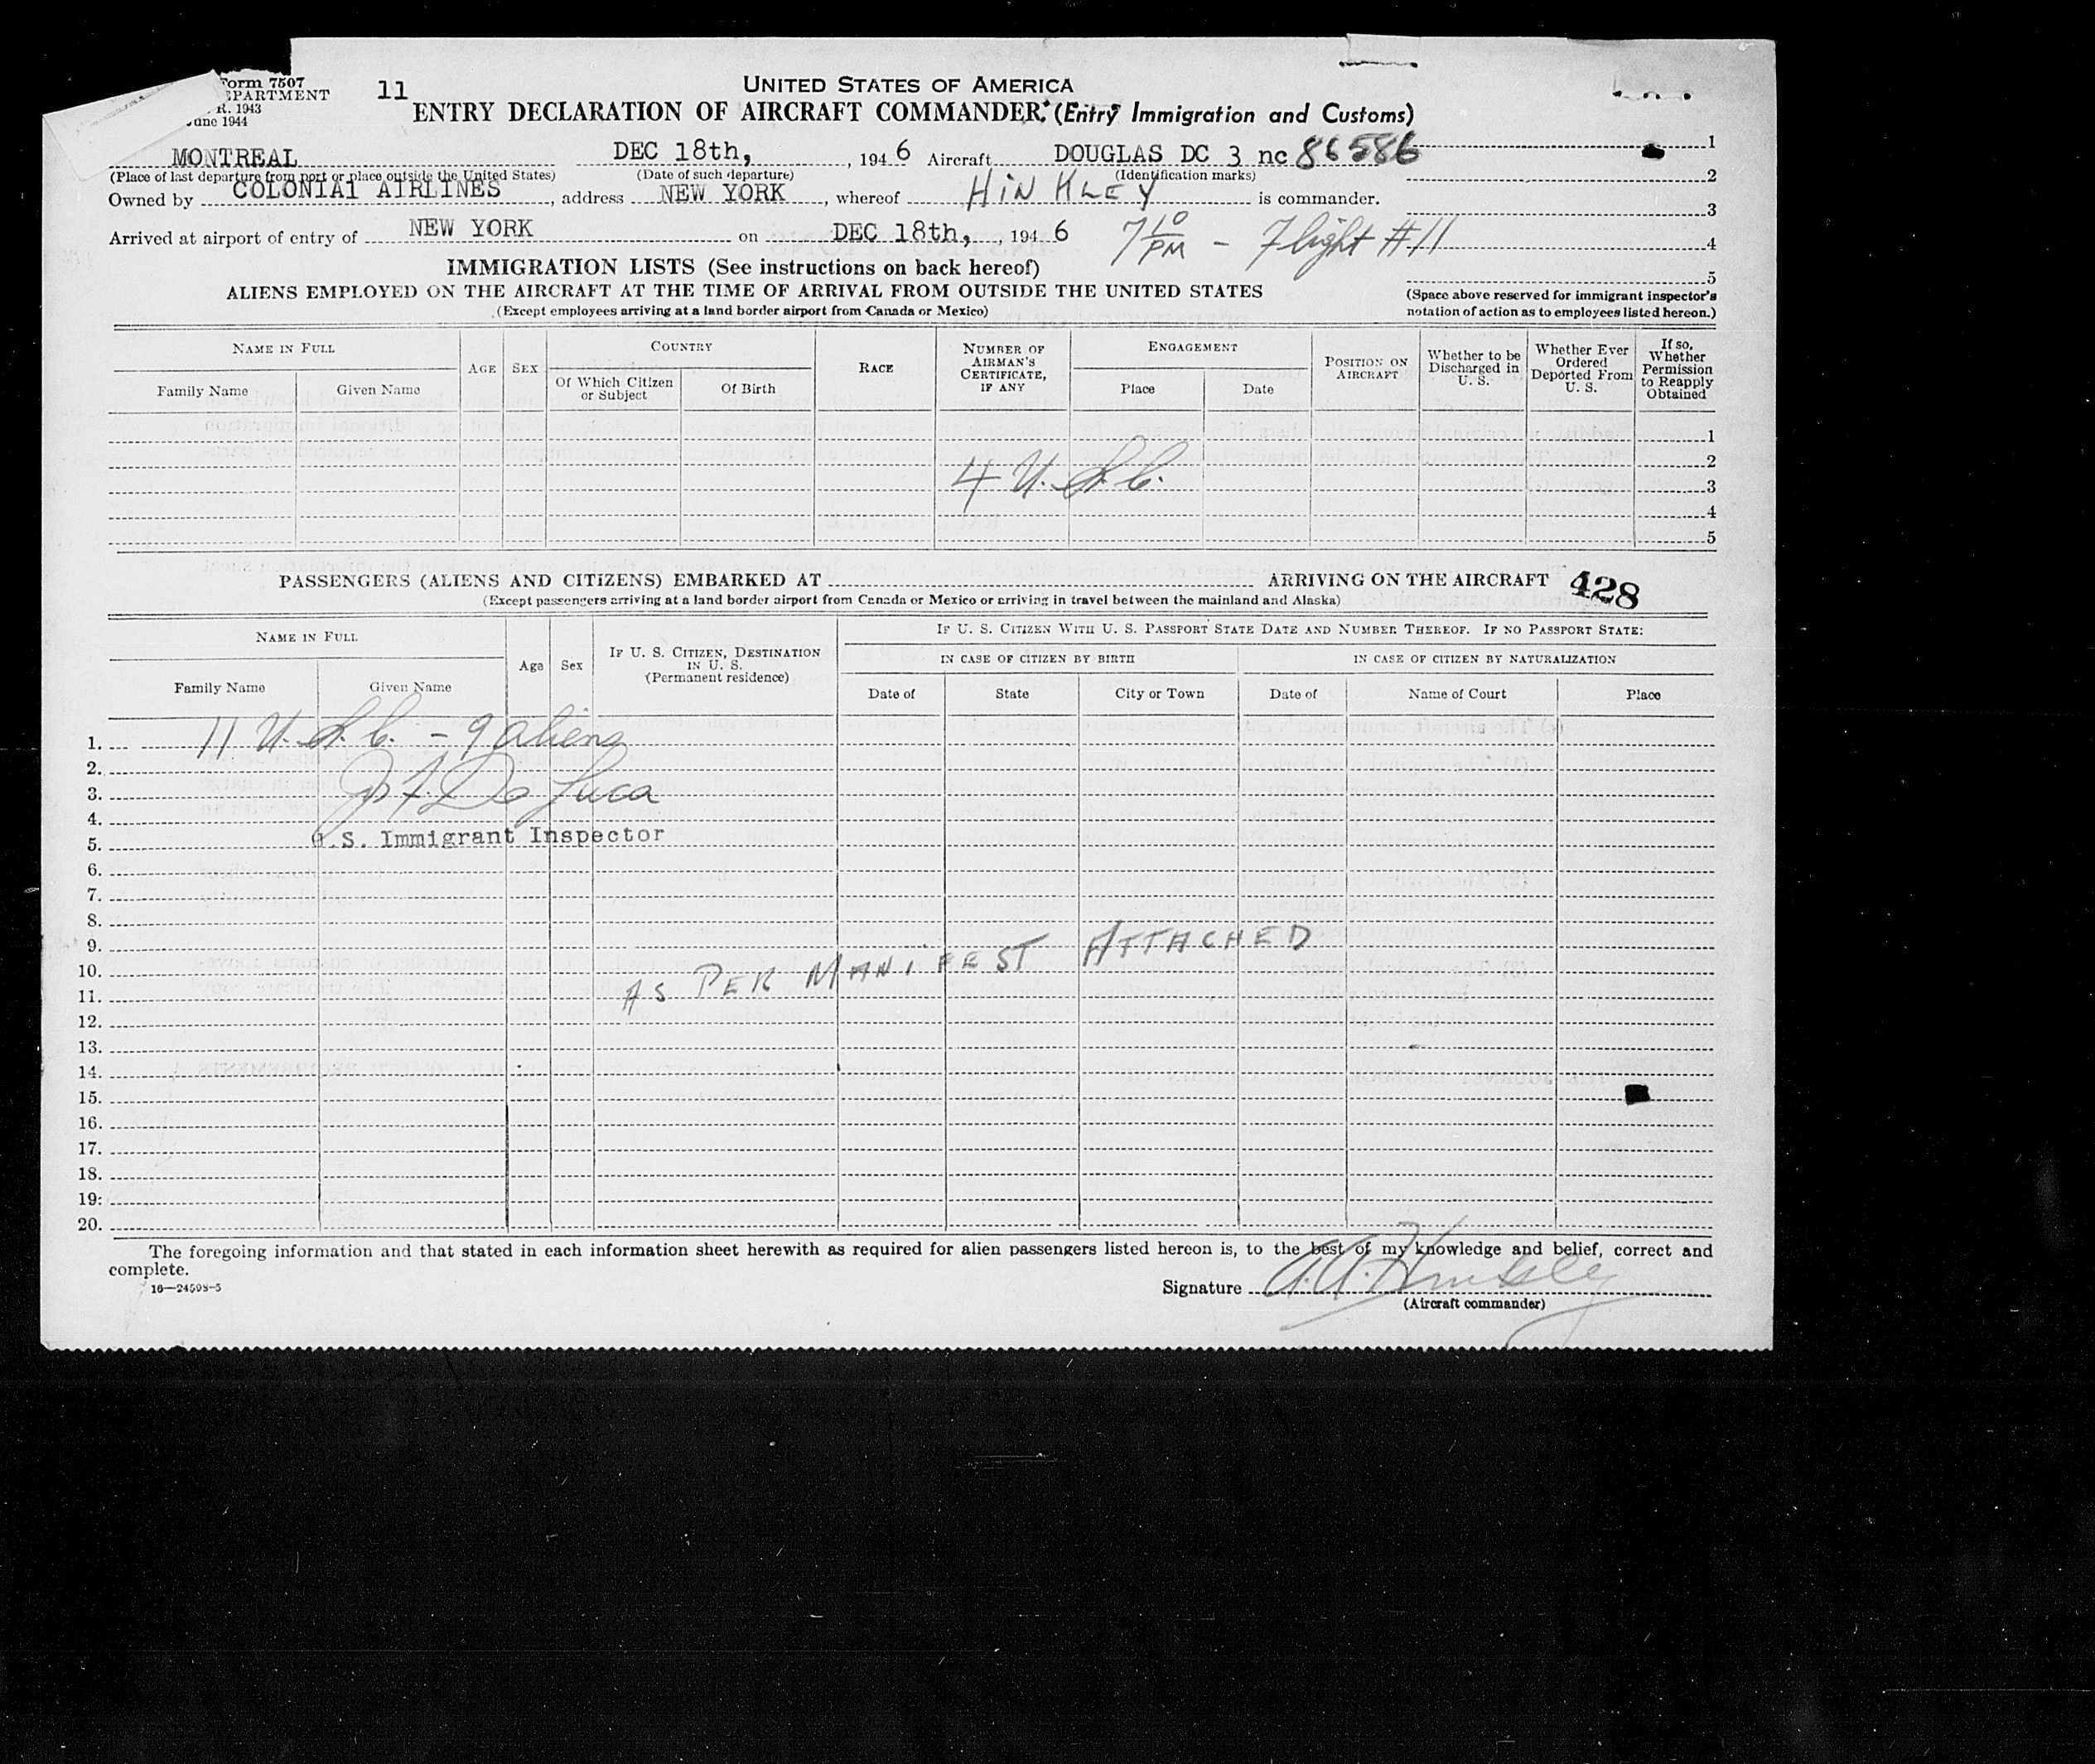 Form 7507
EPARTMENT
R. 1943
June 1944
11
UNITED STATES OF AMERICA
ENTRY DECLARATION OF AIRCRAFT COMMANDER (Entry Immigration and Customs)
MONTREAL DEC 18th, , 194 6 Aircraft DOUGLAS DC 3 nc 86586 1
(Place of last departure from port or place outside the United States) (Date of such departure) (Identification marks) 2
Owned by COLONIAl AIRLINES , address NEW YORK , whereof HINKLEY is commander.
3
Arrived at airport of entry of NEW YORK on DEC 18th, , 194 6 7 10 PM - Flight #11 4
5
IMMIGRATION LISTS (See instructions on back hereof)
ALIENS EMPLOYED ON THE AIRCRAFT AT THE TIME OF ARRIVAL FROM OUTSIDE THE UNITED STATES
(Except employees arriving at a land border airport from Canada or Mexico)
(Space above reserved for immigrant inspector's
notation of action as to employees listed hereon.)
NAME IN FULL
Family Name Given Name
AGE SEX
COUNTRY
Of Which Citizen or Subject Of Birth
RACE
NUMBER OF AIRMAN'S CERTIFICATE, IF ANY
ENGAGEMENT
Place Date
POSITION ON AIRCRAFT
Whether to be Discharged in U. S.
Whether Ever Ordered Deported From U. S.
If so, Whether Permission to Reapply Obtained
1
2
4 U.S.C.
3
4
5
PASSENGERS (ALIENS AND CITIZENS) EMBARKED AT ARRIVING ON THE AIRCRAFT 428
(Except passengers arriving at a land border airport from Canada or Mexico or arriving in travel between the mainland and Alaska)
NAME IN FULL
Family Name Given Name
Age Sex
IF U. S. CITIZEN, DESTINATION IN U. S.
(Permanent residence)
IF U. S. CITIZEN WITH U. S. PASSPORT STATE DATE AND NUMBER THEREOF. IF NO PASSPORT STATE:
IN CASE OF CITIZEN BY BIRTH IN CASE OF CITIZEN BY NATURALIZATION
Date of State City or Town Date of Name of Court Place
1. 11 U.S.C. - 9 aliens
2.
3. De Luca
4.
5. U.S. Immigrant Inspector
6.
7.
8.
9.
10. AS PER MANIFEST ATTACHED
11.
12.
13.
14.
15.
16.
17.
18.
19.
20.
The foregoing information and that stated in each information sheet herewith as required for alien passengers listed hereon is, to the best of my knowledge and belief, correct and
complete.
16—24598-5
Signature Hinkley
(Aircraft commander)